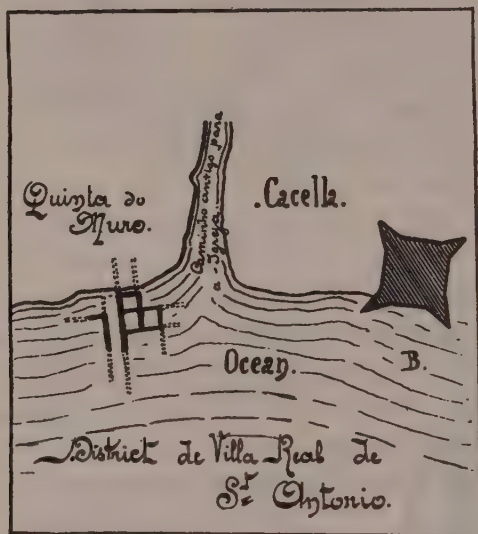 Quinta do
Muro.
Caminho antigo para
a Igreja
.Cacella.
Ocean.
B.
District de Villa Real de
St Antonio.